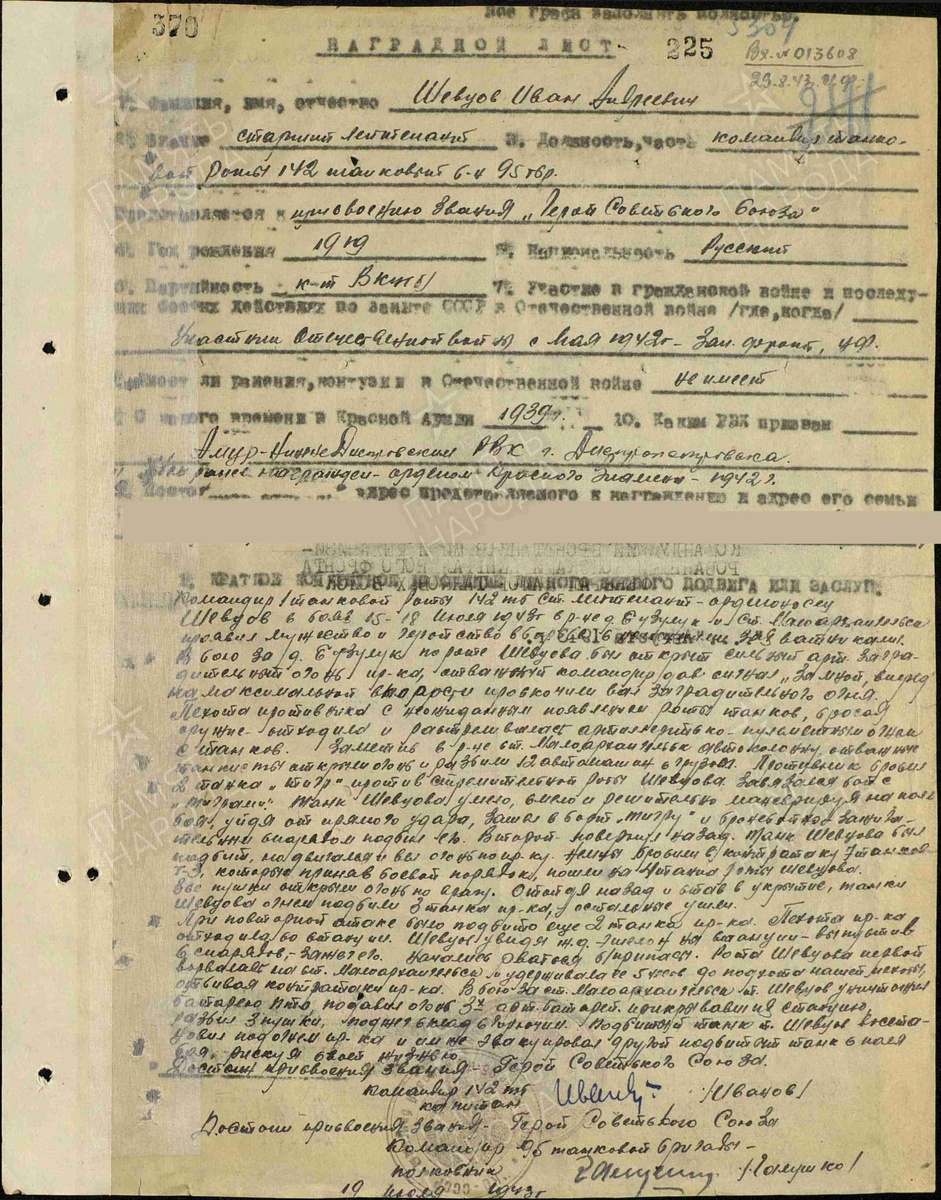 370
НАГРАДНОЙ ЛИСТ 225
Вх. № 013608
23.8.43
1. Фамилия, имя, отчество Шевцов Иван Андреевич
2. Звание старший лейтенант 3. Должность, часть командир танко-
вой роты 142 танковый б-н 95 тбр.
Представляется к присвоению звания „Герой Советского Союза“
4. Год рождения 1919 5. Национальность Русский
6. Партийность к-т ВКП(б) 7. Участие в гражданской войне и последу-
ющих боевых действиях по защите СССР и Отечественной войне /где, когда/
Участник Отечественной войны с мая 1942г- Зап. фронт, ЦФ.
8. Имеет ли ранения, контузии в Отечественной войне не имеет
9. С какого времени в Красной Армии 1939г. 10. Каким РВК призван
Амур-Нижне Днепровский РВК г. Днепропетровска.
ранее награжден орденом Красного Знамени - 1942 г.
адрес представляемого к награждению и адрес его семьи
КРАТКОЕ КОНКРЕТНОЕ ИЗЛОЖЕНИЕ ЛИЧНОГО БОЕВОГО ПОДВИГА ИЛИ ЗАСЛУГ.
Командир 1 танковой роты 142 тб ст. лейтенант-орденоносец
Шевцов в боях 15-18 Июля 1943г в р-не д. Бузулук и ст. Малоархангельск
проявил мужество и геройство в борьбе с захватчиками.
В бою за д. Бузулук по роте Шевцова был открыт сильный арт. загра-
дительный огонь пр-ка, отважный командир дав сигнал „За мной, вперед“
на максимальной скорости проскочили вал заградительного огня.
Пехота противника с неожиданным появлением роты танков, бросая
оружие отходила и расстреливалась артиллерийско-пулеметным огнем
с танков. Заметив в р-не ст. Малоархангельск автоколонну, отважные
танкисты открыли огонь и разбили 12 автомашин с грузом. Противник бросил
2 танка „тигр“ против стремительной роты Шевцова. Завязался бой с
„тиграми“. Танк Шевцова умело, смело и решительно маневрируя на поле
боя, уйдя от прямого удара, зашел в борт „тигру“ и бронебойно-зажига-
тельным снарядом подбил его. Второй повернул назад. Танк Шевцова был
подбит, но двигался и вел огонь по пр-ку. Немцы бросили в контратаку 7 танков
Т-3, которые приняв боевой порядок, пошли на 4 танка роты Шевцова.
Все пушки открыли огонь по врагу. Отойдя назад и став в укрытие, танки
Шевцова огнем подбили 3 танка пр-ка, остальные ушли.
При повторной атаке было подбито еще 2 танка пр-ка. Пехота пр-ка
отходила со станции. Шевцов увидя ж.д. эшелон на станции - выпустив
6 снарядов, - зажег его. Начались рваться боеприпасы. Рота Шевцова первой
ворвалась на ст. Малоархангельск и удерживала ее 5 часов до подхода нашей пехоты,
отбивая контратаки пр-ка. В бою за ст. Малоархангельск т. Шевцов уничтожил
батарею ПТО, подавил огонь 3х арт. батарей, прикрывавших станцию,
разбил 3 пушки, поджег склад с горючим. Подбитый танк т. Шевцов восста-
новил под огнем пр-ка и им же эвакуировал другой подбитый танк с поля
боя, рискуя своей жизнью.
Достоин присвоения звания - Герой Советского Союза.
Командир 142 тб
капитан /Иванов/
Достоин присвоения звания - Герой Советского Союза
Командир 95 танковой бригады -
полковник /Галушко/
19 июля 1943г